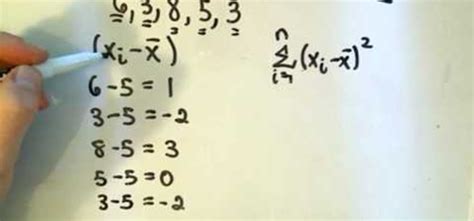 6, 3, 8, 5, 3
(xᵢ - x̄)
6 - 5 = 1
3 - 5 = -2
8 - 5 = 3
5 - 5 = 0
3 - 5 = -2
n
Σ (xᵢ - x̄)²
i=1